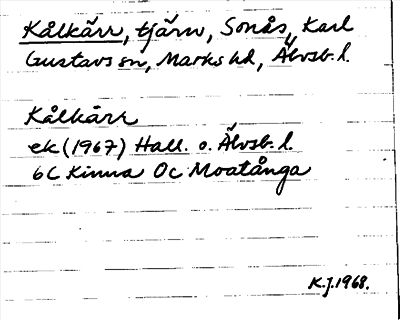 Kålkärr, tjärn, Sonås, Karl
Gustavs sn, Marks hd, Älvsb. l.
Kålkärr
ek (1967) Hall. o. Älvsb. l.
6C Kinna 0c Moatånga
K.J. 1968.